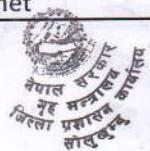 net
नेपाल सरकार
गृह मन्त्रालय
जिल्ला प्रशासन कार्यालय
सोलुखुम्बु